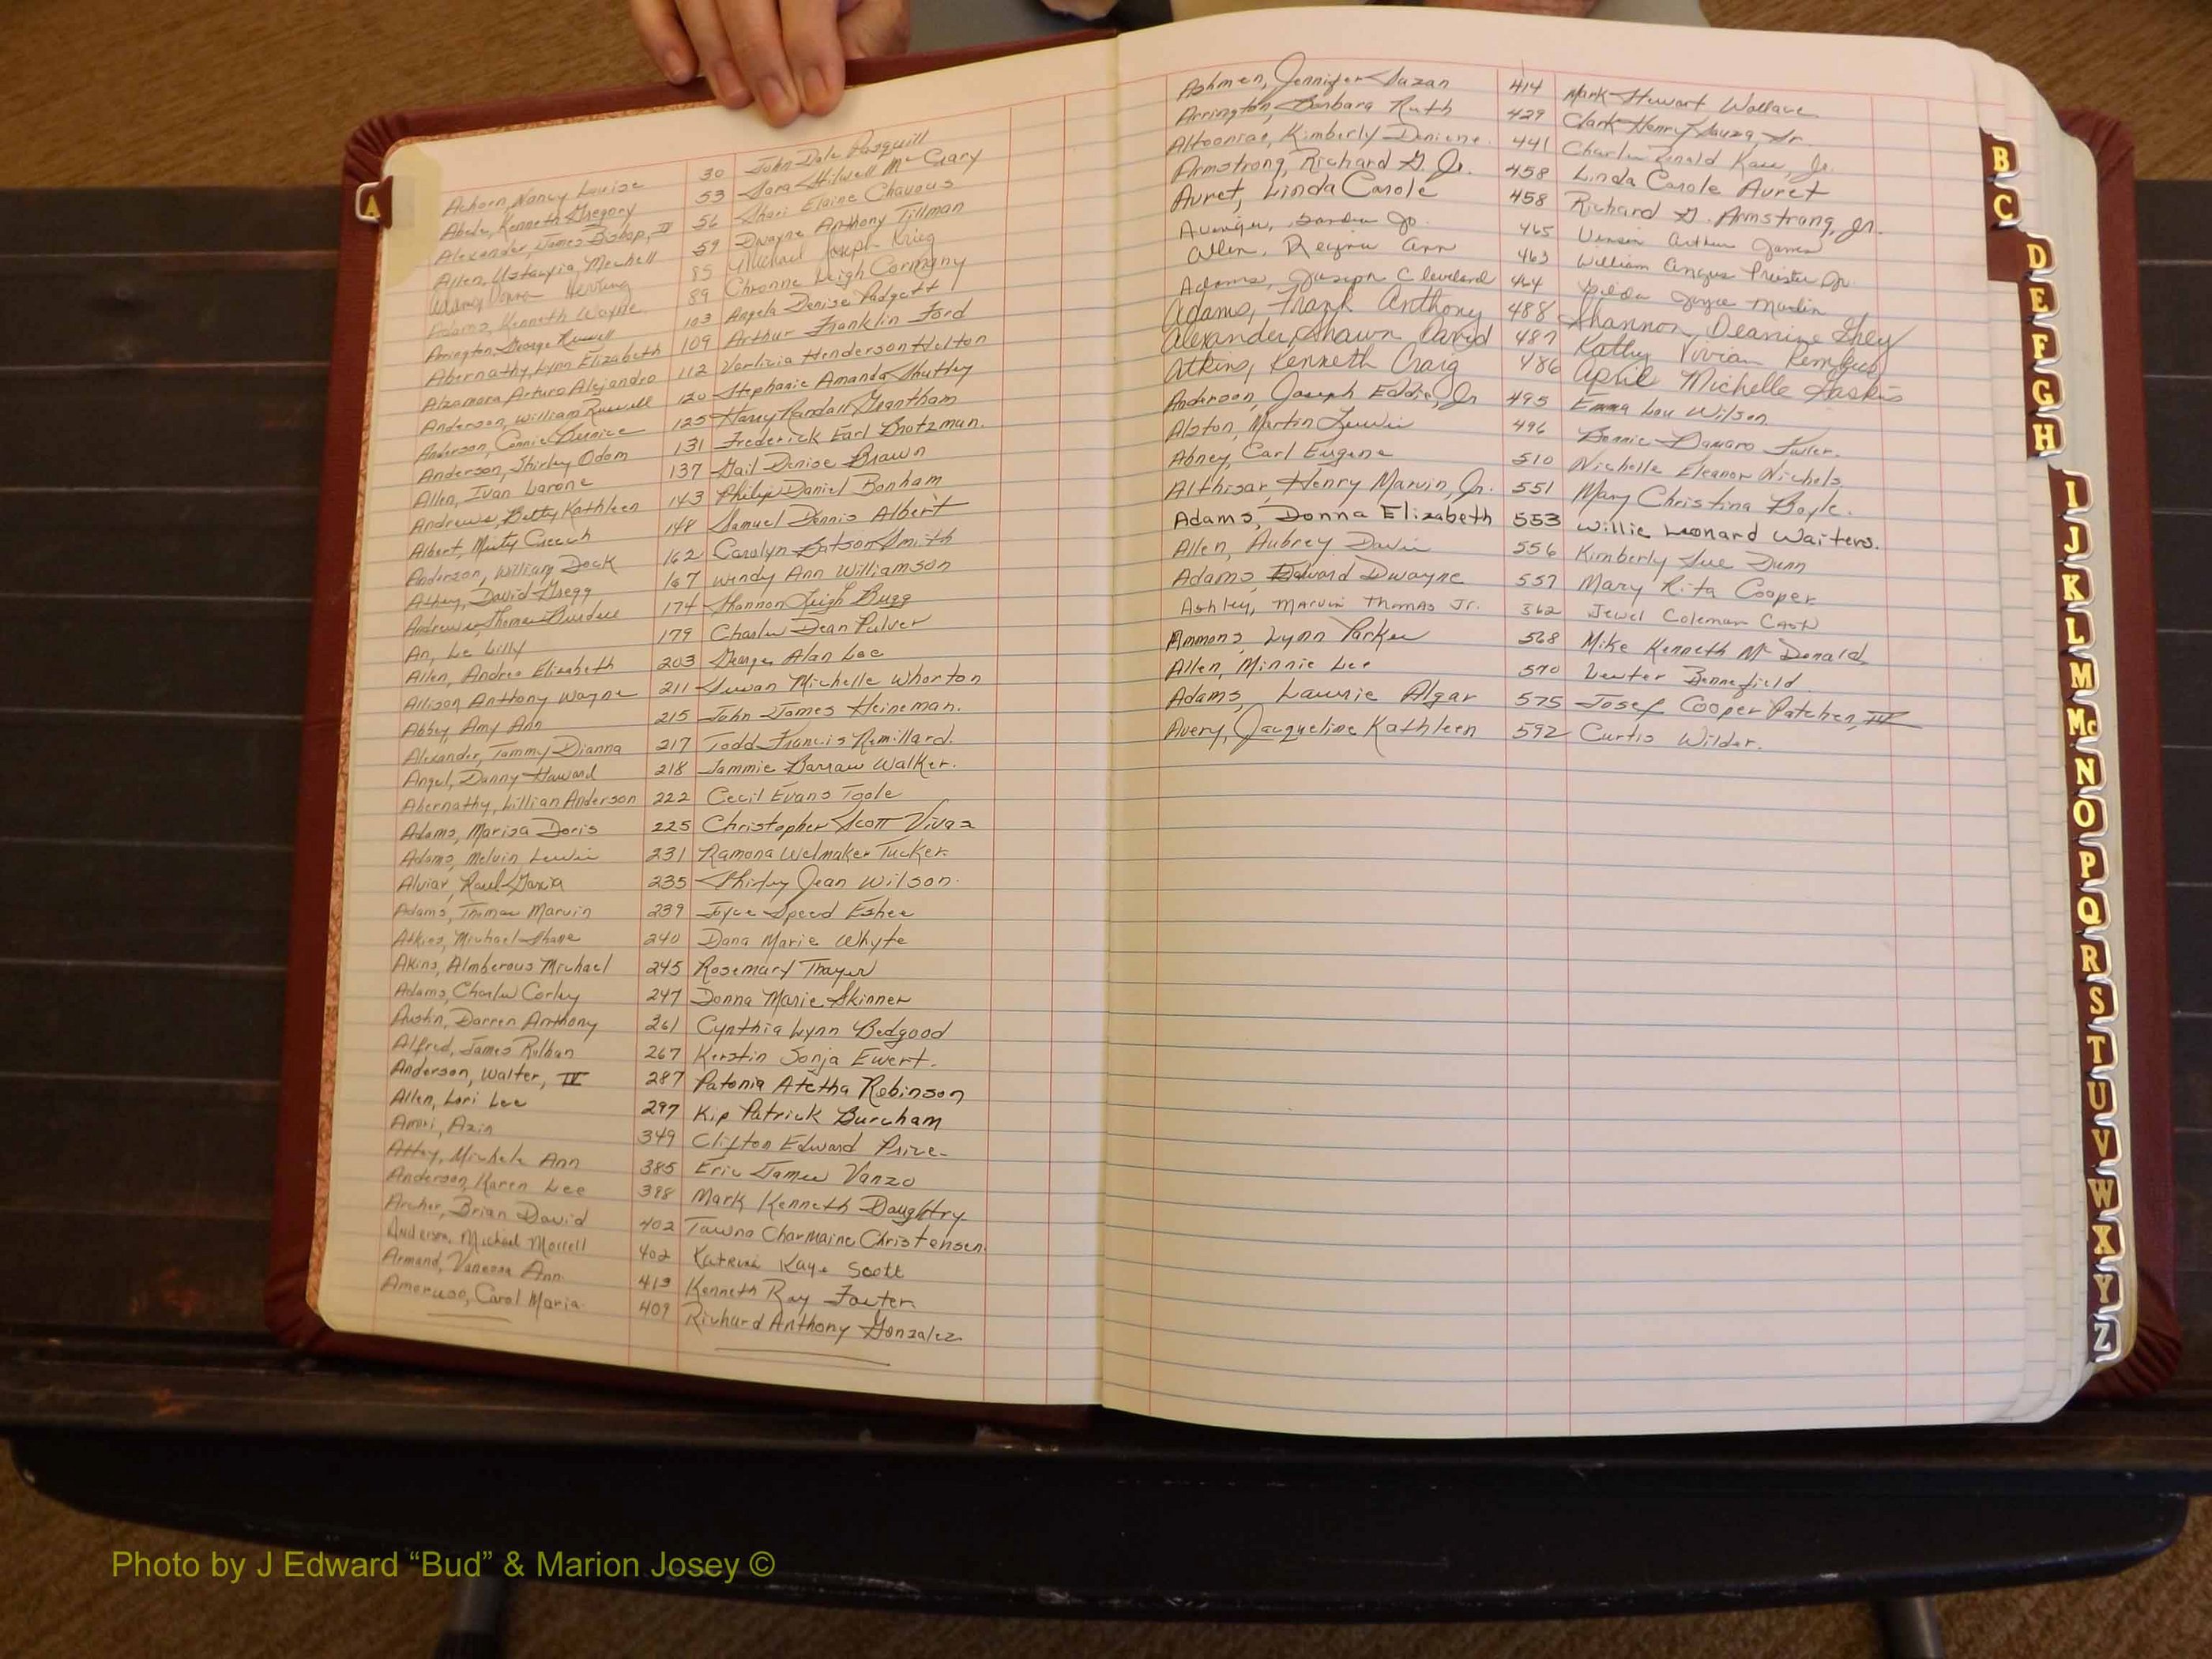 A
Achorn, Nancy Louise 30 John Dale Pasquill
Abele, Kenneth Gregory 53 Sara Stilwell McCrary
Alexander, James Bishop, IV 56 Shari Elaine Chavous
Allen, Ustacyia Mechell 59 Dwayne Anthony Tillman
Donna Herring 85 Michael Joseph Krieg
Adams, Kenneth Wayne 89 Chronne Leigh Cormany
Arrington, George Russell 103 Angela Denise Padgett
Abernathy, Lynn Elizabeth 109 Arthur Franklin Ford
Alzamora Arturo Alejandro 112 Verlizia Henderson Helton
Anderson, William Russell 120 Stephanie Amanda Shutley
Anderson, Connie Bernice 125 Harry Randall Grantham
Anderson, Shirley Odom 131 Frederick Earl Brotzman.
Allen, Ivan Larone 137 Gail Denise Brown
Andrews, Betty Kathleen 143 Philip Daniel Bonham
Albert, Misty Creech 148 Samuel Dennis Albert
Anderson, William Dock 162 Carolyn Batson Smith
Athey, David Gregg 167 Wendy Ann Williamson
Andrews, Thomas Burdee 174 Shannon Leigh Bugg
An, Le Lilly 179 Charles Dean Pulver
Allen, Andrea Elizabeth 203 George Alan Lee
Allison Anthony Wayne 211 Susan Michelle Whorton
Abbey, Amy Ann 215 John James Heineman.
Alexander, Tammy Dianna 217 Todd Francis Remillard.
Angel, Danny Howard 218 Tammie Barrow Walker.
Abernathy, Lillian Anderson 222 Cecil Evans Toole
Adams, Marisa Doris 225 Christopher Scott Vivas
Adams, Melvin Lewis 231 Ramona Welmaker Tucker.
Alviar, Raul Garcia 235 Shirley Jean Wilson.
Adams, Thomas Marvin 239 Joyce Speed Eshee
Adkins, Michael Shane 240 Dana Marie Whyte
Akins, Almberous Michael 245 Rosemary Thayer
Adams, Charles Corley 247 Donna Marie Skinner
Austin, Darren Anthony 261 Cynthia Lynn Bedgood
Alfred, James Rulhan 267 Kerstin Sonja Ewert.
Anderson, Walter, IV 287 Patonia Atetha Robinson
Allen, Lori Lee 297 Kip Patrick Burcham
Amiri, Azin 349 Clifton Edward Price
Attey, Michele Ann 385 Eric James Vanzo
Anderson, Karen Lee 398 Mark Kenneth Daughtry
Archer, Brian David 402 Tawna Charmaine Christensen.
Anderson, Michael Morrell 402 Katrina Kaye Scott
Armand, Vanessa Ann 413 Kenneth Ray Foster
Amoruso, Carol Maria 409 Richard Anthony Gonzalez
Ashmen, Jennifer Suzan 414 Mark Stewart Wallace
Arrington, Barbara Ruth 429 Clark Henry Souza, Sr.
Altooniae, Kimberly Deniene. 441 Charles Ronald Kaw, Jr.
Armstrong, Richard G. Jr. 458 Linda Carole Auret
Auret, Linda Carole 458 Richard G. Armstrong, Jr.
Avenger, Sandra Jo. 465 Arthur James
Allen, Regina Ann 463 William Angus Priester Jr.
Adams, Joseph Cleveland 464 Joyce Martin
Adams, Frank Anthony 488 Shannon Deanine Grey
Alexander, Shawn David 487 Kathy Vivian
Atkins, Kenneth Craig 486 April Michelle Gaskin
Anderson, Joseph Eddie, Jr 495 Emma Lou Wilson
Alston, Martin Lewis 496 Bonnie Damaro Fuller.
Abney, Carl Eugene 510 Nichelle Eleanor Nichols
Althisar, Henry Marvin, Jr. 551 Mary Christina Boyle.
Adams, Donna Elizabeth 553 Willie Leonard Waiters.
Allen, Aubrey Davis 556 Kimberly Sue Dunn
Adams, Edward Dwayne 557 Mary Rita Cooper
Ashley, Marvin Thomas Jr. 362 Jewel Coleman Cash
Ammons, Lynn Parker 568 Mike Kenneth McDonald
Allen, Minnie Lee 570 Lester Bennefield
Adams, Laurie Algar 575 Josef Cooper Patchen, III
Avery, Jacqueline Kathleen 592 Curtis Wilder.
B
C
D
E
F
G
H
I
J
K
L
M
Mc
N
O
P
Q
R
S
T
U
V
W
X
Y
Z
Photo by J Edward “Bud” & Marion Josey ©